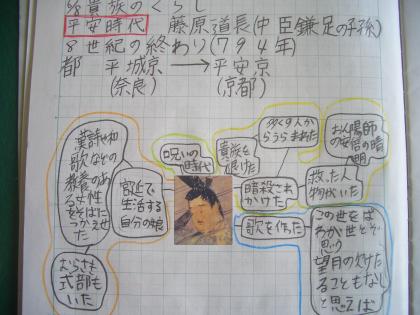 6/8 貴族のくらし
平安時代 藤原道長(中臣鎌足の子孫)
8世紀の終わり(794年)
都 平城京→平安京
(奈良)
(京都)
漢詩や和
歌などの
教養のあ
る女性
をそばに
つかえさせた
むらさき
式部も
いた
宮廷で
生活する
自分の娘
呪いの
時代
貴族を
退けた
多くの人か
らうらまれた
暗殺され
かけた
お陰陽師
の安倍の晴
明
救った人
物がいた
歌を作った
この世をば
わが世とぞ
思う
望月のかけた
ることもなし
と思えば